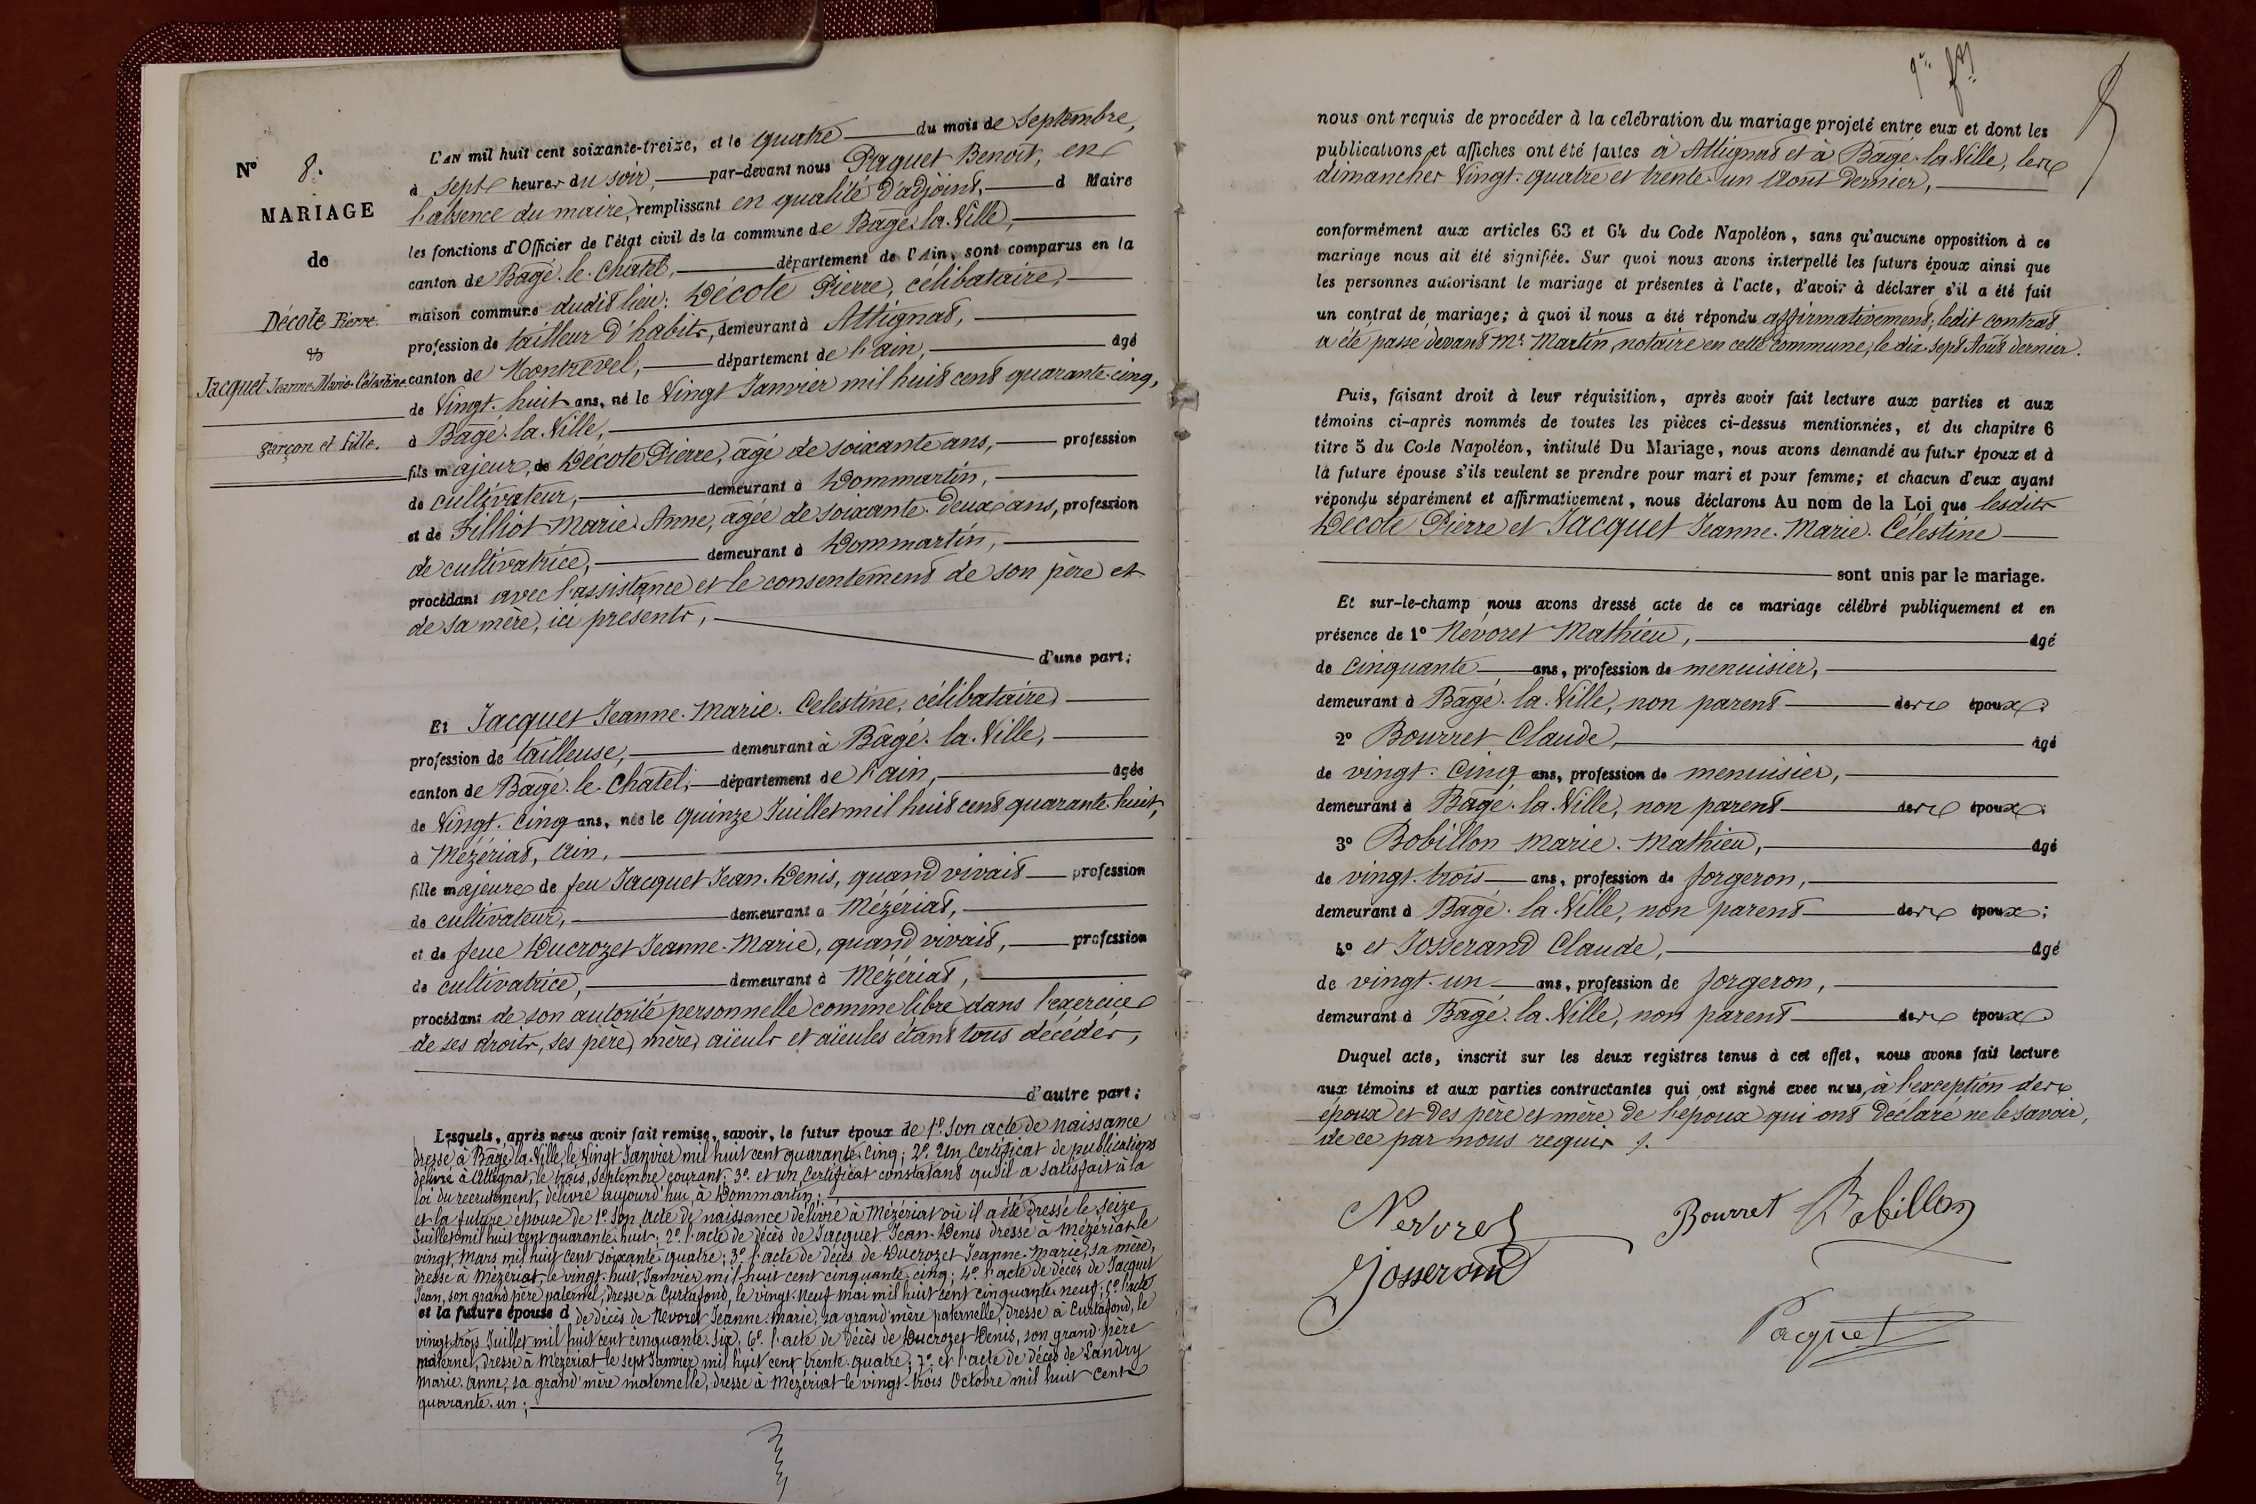 N° 8.
MARIAGE
de
Décote Pierre
&
Jacquet Jeanne-Marie-Célestine
garçon et fille.
L'AN mil huit cent soixante-treize, et le quatre du mois de Septembre,
à sept heures du soir, par-devant nous Paquet Benoit, en
l'absence du maire, remplissant en qualité d'adjoint, d Maire
les fonctions d'Officier de l'état civil de la commune de Bâgé-la-Ville,
canton de Bâgé-le-Châtel, département de l'Ain, sont comparus en la
maison commune dudit lieu: Décote Pierre, célibataire,
profession de tailleur d'habits, demeurant à Attignat,
canton de Montrevel, département de l'ain, âgé
de Vingt-huit ans, né le Vingt Janvier mil huit cent quarante-cinq,
à Bâgé-la-Ville,
fils majeur, de Décote Pierre, âgé de soixante ans, profession
de cultivateur, demeurant à Dommartin,
et de Filliot Marie-Anne, âgée de soixante-deux ans, profession
de cultivatrice, demeurant à Dommartin,
procédant avec l'assistance et le consentement de son père et
de sa mère, ici présents,
d'une part;
Et Jacquet Jeanne-Marie-Celestine, célibataire,
profession de tailleuse, demeurant à Bâgé-la-Ville,
canton de Bâgé-le-Châtel, département de l'ain, âgée
de Vingt-Cinq ans, née le quinze Juillet mil huit cent quarante-huit,
à Mézériat, Ain,
fille majeure de feu Jacquet Jean-Denis, quand vivait profession
de cultivateur, demeurant à Mézériat,
et de feue Ducrozet Jeanne-Marie, quand vivait, profession
de cultivatrice, demeurant à Mézériat,
procédant de son autorité personnelle comme libre dans l'exercice
de ses droits, ses père, mère, aïeuls et aïeules étant tous décédés,
d'autre part;
Lesquels, après nous avoir fait remise, savoir, le futur époux de 1° son acte de naissance
dressé à Bâgé-la-Ville, le Vingt Janvier mil huit cent quarante-cinq; 2° Un certificat de publications
délivré à Attignat, le trois Septembre courant; 3° et un certificat constatant qu'il a satisfait à la
loi du recrutement, délivré aujourd'hui à Dommartin;
et la future épouse de 1° son acte de naissance délivré à Mézériat où il a été dressé le seize
Juillet mil huit cent quarante-huit; 2° l'acte de décès de Jacquet Jean-Denis dressé à Mézériat le
vingt Mars mil huit cent soixante-quatre; 3° l'acte de décès de Ducrozet Jeanne-Marie, sa mère,
dressé à Mézériat le vingt-huit Janvier mil huit cent cinquante-cinq; 4° l'acte de décès de Jacquet
Jean, son grand'père paternel, dressé à Curtafond, le vingt-neuf mai mil huit cent cinquante-neuf; 5° l'acte
et la future épouse d de décès de Nevoret Jeanne-Marie, sa grand'mère paternelle, dressé à Curtafond, le
vingt-trois Juillet mil huit cent cinquante-six; 6° l'acte de décès de Ducrozet Denis, son grand-père
maternel, dressé à Mézériat le sept Janvier mil huit cent trente-quatre; 7° et l'acte de décès de Landry
Marie-Anne, sa grand'mère maternelle, dressé à Mézériat le vingt-trois Octobre mil huit cent
quarante-un;
nous ont requis de procéder à la célébration du mariage projeté entre eux et dont les
publications et affiches ont été faites à Attignat et à Bâgé-la-Ville, les
dimanches Vingt-quatre et trente-un Août dernier,
conformément aux articles 63 et 64 du Code Napoléon, sans qu'aucune opposition à ce
mariage nous ait été signifiée. Sur quoi nous avons interpellé les futurs époux ainsi que
les personnes autorisant le mariage et présentes à l'acte, d'avoir à déclarer s'il a été fait
un contrat de mariage; à quoi il nous a été répondu affirmativement; ledit contrat
a été passé devant Me Martin, notaire en cette commune, le dix-sept Août dernier.
Puis, faisant droit à leur réquisition, après avoir fait lecture aux parties et aux
témoins ci-après nommés de toutes les pièces ci-dessus mentionnées, et du chapitre 6
titre 5 du Code Napoléon, intitulé Du Mariage, nous avons demandé au futur époux et à
la future épouse s'ils veulent se prendre pour mari et pour femme; et chacun d'eux ayant
répondu séparément et affirmativement, nous déclarons Au nom de la Loi que lesdits
Décote Pierre et Jacquet Jeanne-Marie-Célestine
sont unis par le mariage.
Et sur-le-champ nous avons dressé acte de ce mariage célébré publiquement et en
présence de 1° Névoret Mathieu, âgé
de cinquante ans, profession de menuisier,
demeurant à Bâgé-la-Ville, non parent des époux;
2° Bourret Claude, âgé
de vingt-cinq ans, profession de menuisier,
demeurant à Bâgé-la-Ville, non parent des époux;
3° Bobillon Marie-Mathieu, âgé
de vingt-trois ans, profession de forgeron,
demeurant à Bâgé-la-Ville, non parent des époux;
4° et Josserand Claude, âgé
de vingt-un ans, profession de forgeron,
demeurant à Bâgé-la-Ville, non parent des époux
Duquel acte, inscrit sur les deux registres tenus à cet effet, nous avons fait lecture
aux témoins et aux parties contractantes qui ont signé avec nous, à l'exception des
époux et des père et mère de l'époux qui ont déclaré ne le savoir,
de ce par nous requis /.
Nevoret
Bourret
Bobillon
Josserand
Paquet